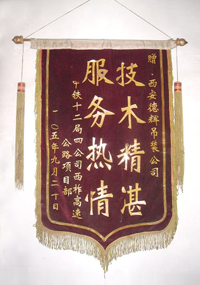 赠:西安德辉吊装公司
技术精湛
服务热情
中铁十二局四公司西柞高速
公路项目部
一〇五年九月二十日